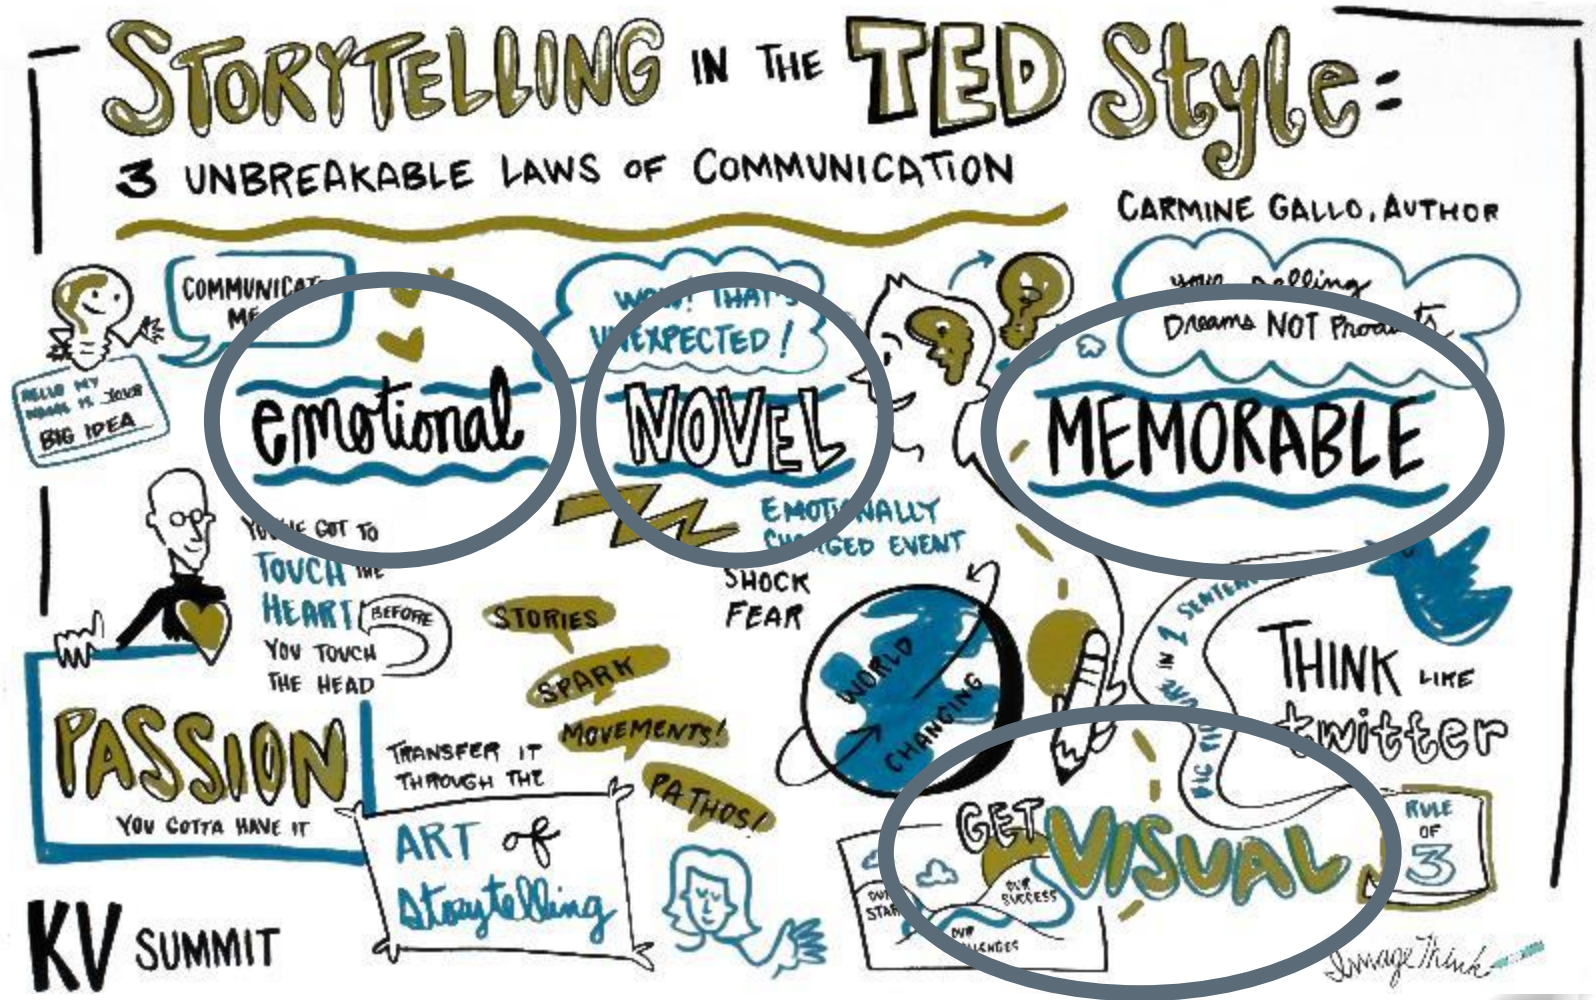 STORYTELLING IN THE TED Style:
3 UNBREAKABLE LAWS OF COMMUNICATION
CARMINE GALLO, AUTHOR
COMMUNICATE
ME
HELLO MY
NAME IS YOUR
BIG IDEA
emotional
WOW! THAT'S
UNEXPECTED!
NOVEL
your selling
Dreams NOT Products
MEMORABLE
YOU'VE GOT TO
TOUCH THE
HEART BEFORE
YOU TOUCH
THE HEAD
PASSION
YOU GOTTA HAVE IT
TRANSFER IT
THROUGH THE
ART of
Storytelling
STORIES
SPARK
MOVEMENTS!
PATHOS!
EMOTIONALLY
CHARGED EVENT
SHOCK
FEAR
WORLD
CHANGING
BIG PICTURE IN 1 SENTENCE
THINK LIKE
twitter
GET VISUAL
OUR
START
OUR
SUCCESS
OUR
CHALLENGES
RULE
OF
3
KV SUMMIT
ImageThink